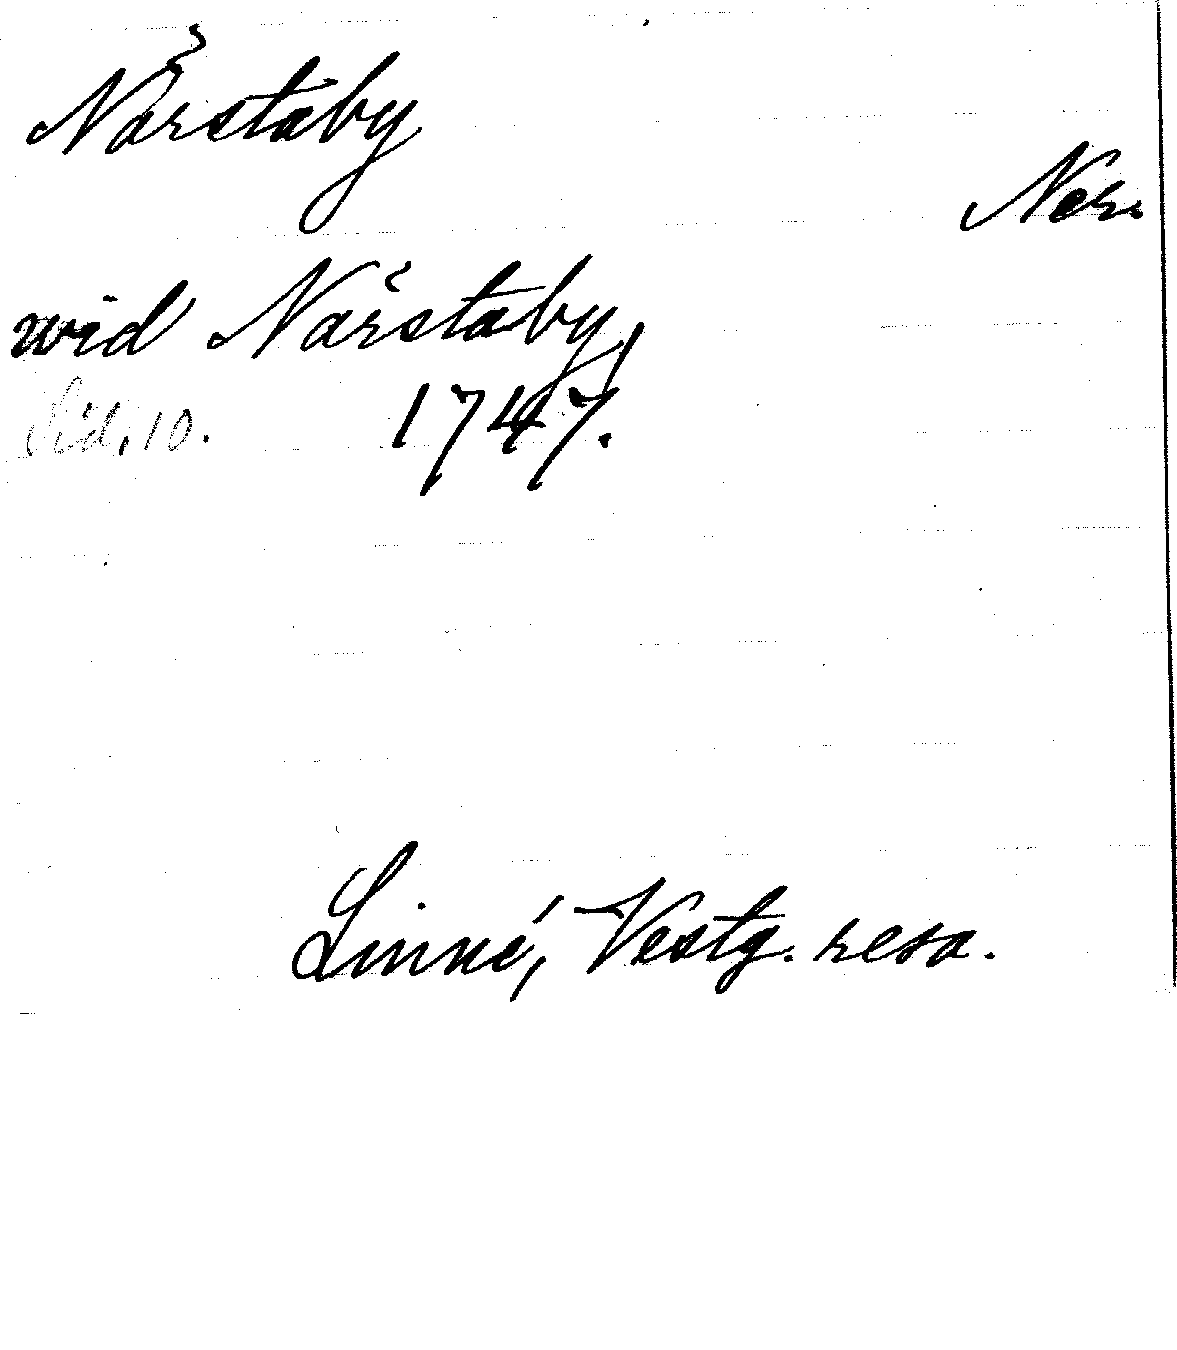 Nårstaby
Ner.
wid Nårstaby,
Sid. 10. 1747.
Linné, Vestg. resa.